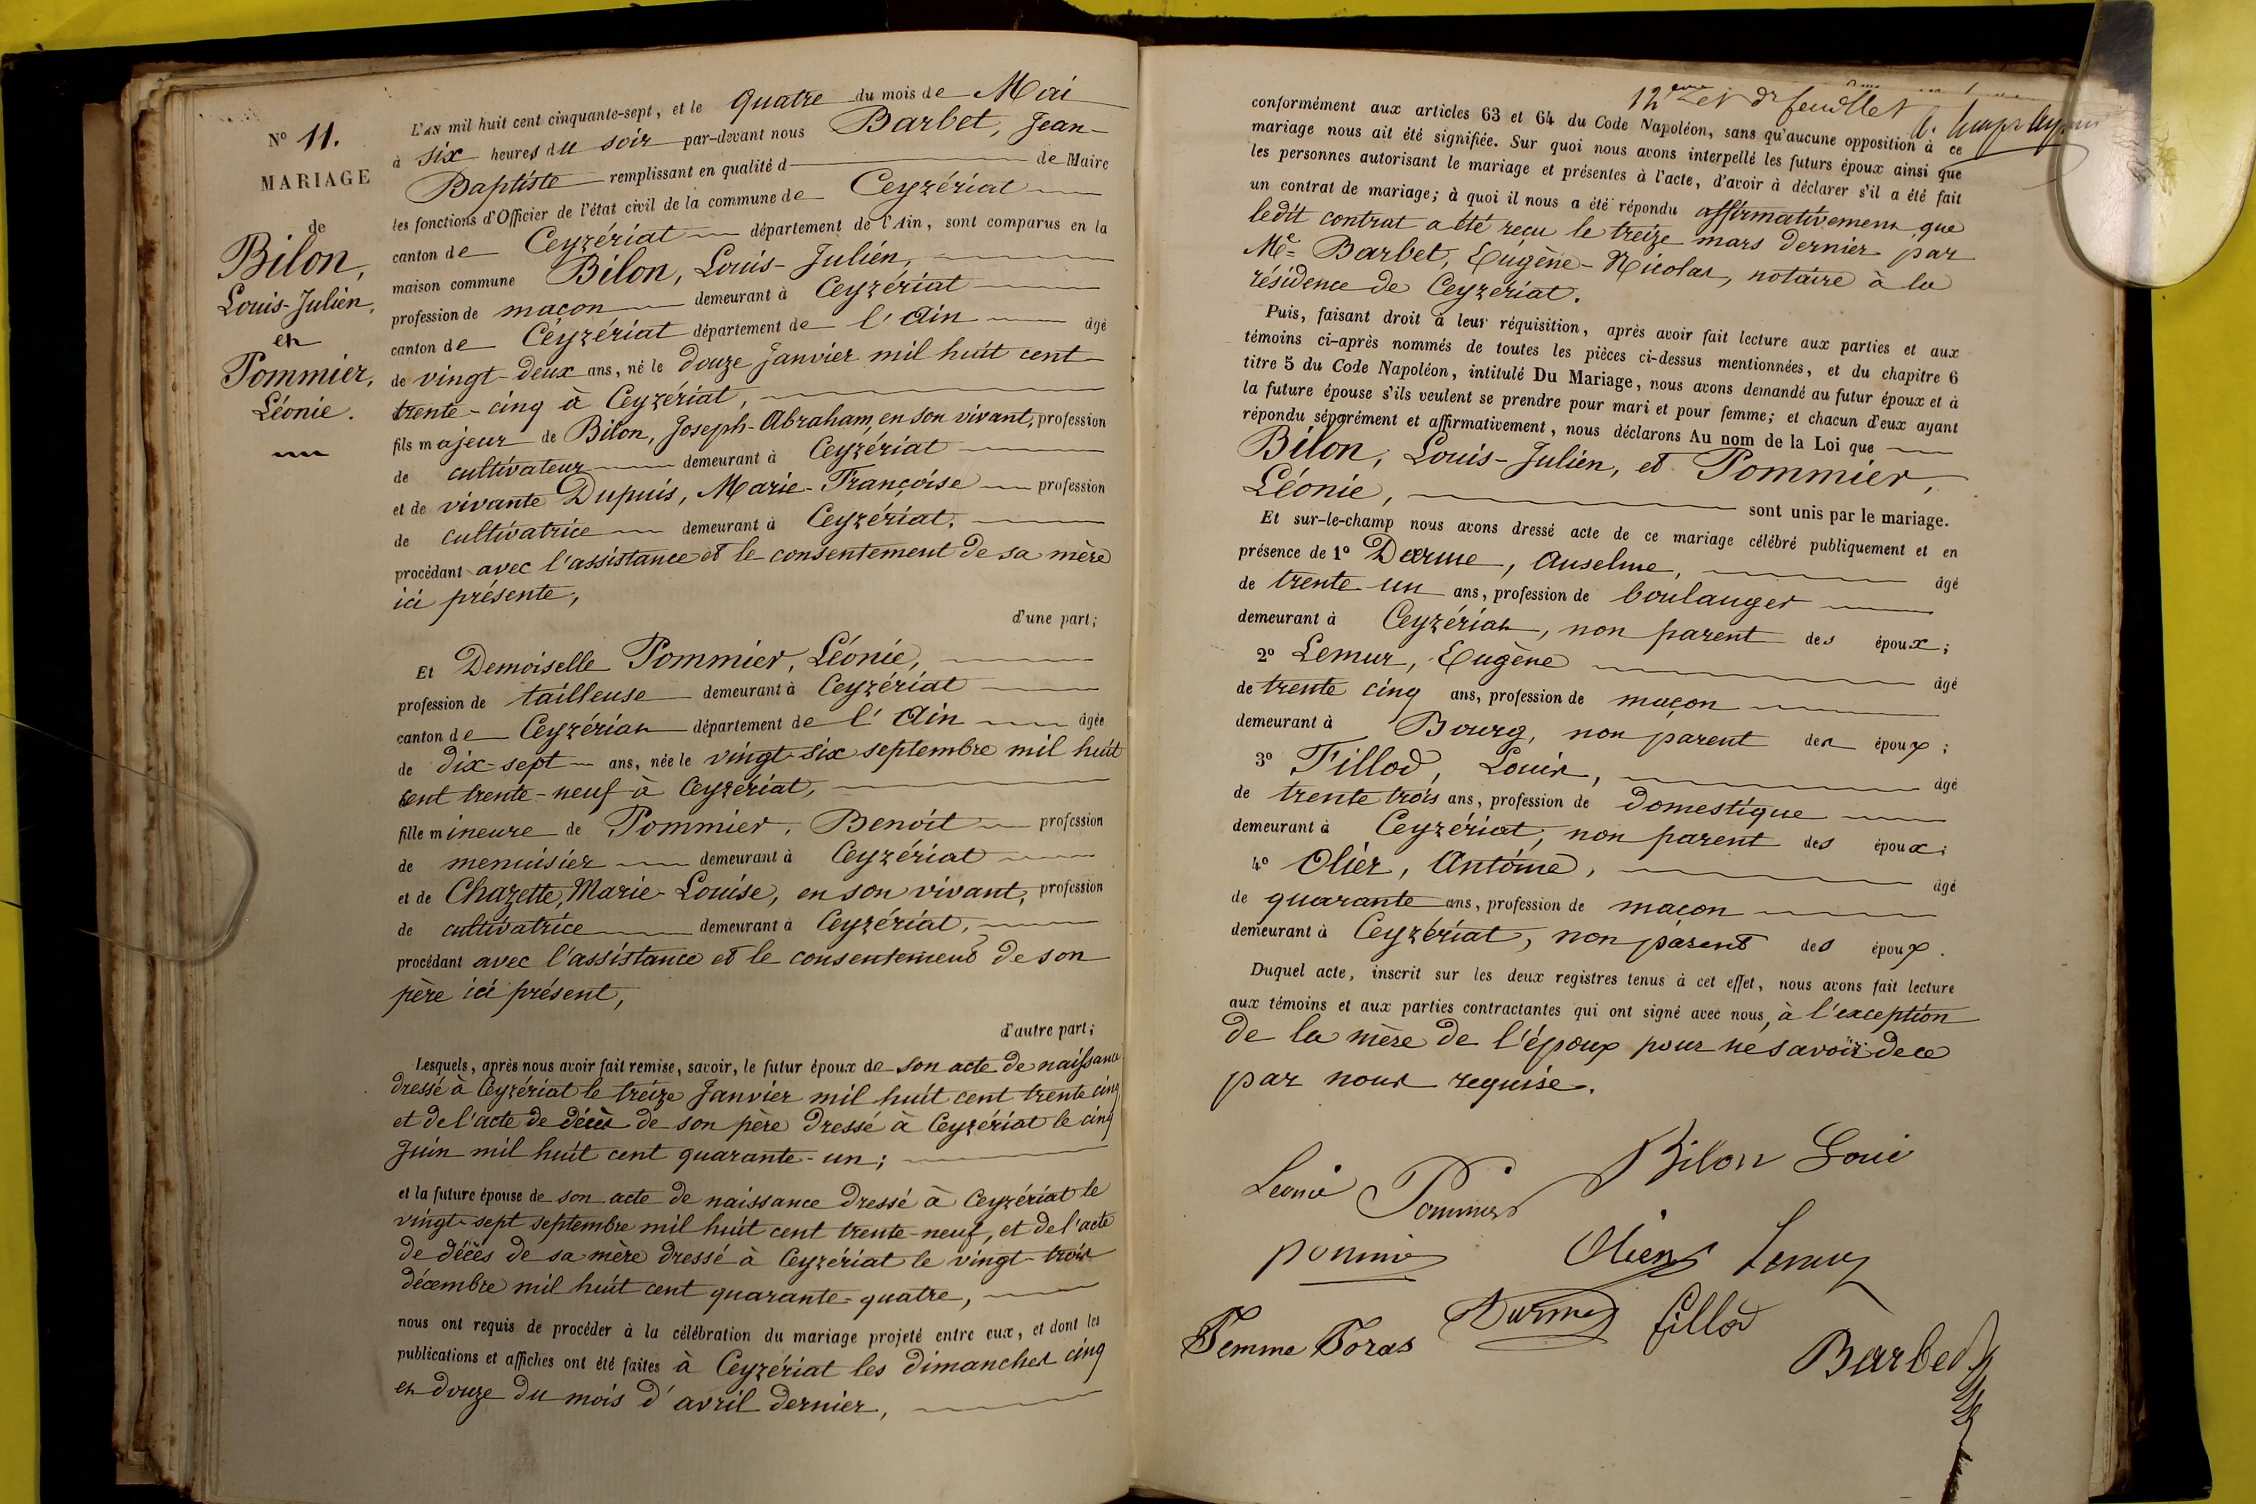 N° 11.
MARIAGE
de
Bilon,
Louis-Julien,
et
Pommier,
Léonie.
L'AN mil huit cent cinquante-sept, et le quatre du mois de Mai
à six heures du soir par-devant nous Barbet, Jean-
Baptiste remplissant en qualité d de Maire
les fonctions d'Officier de l'état civil de la commune de Ceyzériat
canton de Ceyzériat département de l'Ain, sont comparus en la
maison commune Bilon, Louis-Julien,
profession de maçon demeurant à Ceyzériat
canton de Ceyzériat département de l'Ain âgé
de vingt-deux ans, né le douze Janvier mil huit cent
trente-cinq à Ceyzériat,
fils majeur de Bilon, Joseph-Abraham, en son vivant, profession
de cultivateur demeurant à Ceyzériat
et de vivante Dupuis, Marie-Françoise profession
de cultivatrice demeurant à Ceyzériat,
procédant avec l'assistance et le consentement de sa mère
ici présente,
d'une part;
Et Demoiselle Pommier, Léonie,
profession de tailleuse demeurant à Ceyzériat
canton de Ceyzériat département de l'Ain âgée
de dix-sept ans, née le vingt-six septembre mil huit
cent trente-neuf à Ceyzériat,
fille mineure de Pommier, Benoît profession
de menuisier demeurant à Ceyzériat
et de Chazette, Marie-Louise, en son vivant, profession
de cultivatrice demeurant à Ceyzériat,
procédant avec l'assistance et le consentement de son
père ici présent,
d'autre part;
Lesquels, après nous avoir fait remise, savoir, le futur époux de son acte de naissance
dressé à Ceyzériat le treize Janvier mil huit cent trente cinq
et de l'acte de décès de son père dressé à Ceyzériat le cinq
Juin mil huit cent quarante-un;
et la future épouse de son acte de naissance dressé à Ceyzériat le
vingt-sept septembre mil huit cent trente-neuf, et de l'acte
de décès de sa mère dressé à Ceyzériat le vingt-trois
décembre mil huit cent quarante-quatre,
nous ont requis de procéder à la célébration du mariage projeté entre eux, et dont les
publications et affiches ont été faites à Ceyzériat les dimanches cinq
et douze du mois d'avril dernier,
12eme et dr feuillet
conformément aux articles 63 et 64 du Code Napoléon, sans qu'aucune opposition à ce
mariage nous ait été signifiée. Sur quoi nous avons interpellé les futurs époux ainsi que
les personnes autorisant le mariage et présentes à l'acte, d'avoir à déclarer s'il a été fait
un contrat de mariage; à quoi il nous a été répondu affirmativement que
ledit contrat a été reçu le treize mars dernier par
Me Barbet, Eugène-Nicolas, notaire à la
résidence de Ceyzériat.
Puis, faisant droit à leur réquisition, après avoir fait lecture aux parties et aux
témoins ci-après nommés de toutes les pièces ci-dessus mentionnées, et du chapitre 6
titre 5 du Code Napoléon, intitulé Du Mariage, nous avons demandé au futur époux et à
la future épouse s'ils veulent se prendre pour mari et pour femme; et chacun d'eux ayant
répondu séparément et affirmativement, nous déclarons Au nom de la Loi que
Bilon, Louis-Julien, et Pommier,
Léonie, sont unis par le mariage.
Et sur-le-champ nous avons dressé acte de ce mariage célébré publiquement et en
présence de 1° Darme, Anselme, âgé
de trente-un ans, profession de boulanger
demeurant à Ceyzériat, non parent des époux;
2° Lemur, Eugène âgé
de trente cinq ans, profession de maçon
demeurant à Bourg, non parent des époux;
3° Fillod, Louis, âgé
de trente trois ans, profession de domestique
demeurant à Ceyzériat, non parent des époux;
4° Olier, Antoine, âgé
de quarante ans, profession de maçon
demeurant à Ceyzériat, non parent des époux.
Duquel acte, inscrit sur les deux registres tenus à cet effet, nous avons fait lecture
aux témoins et aux parties contractantes qui ont signé avec nous, à l'exception
de la mère de l'époux pour ne savoir de ce
par nous requise.
Bilon Loui
Leonie Pommier
pommie Olier Lemur
Femme Foras Darme fillod
Barbet